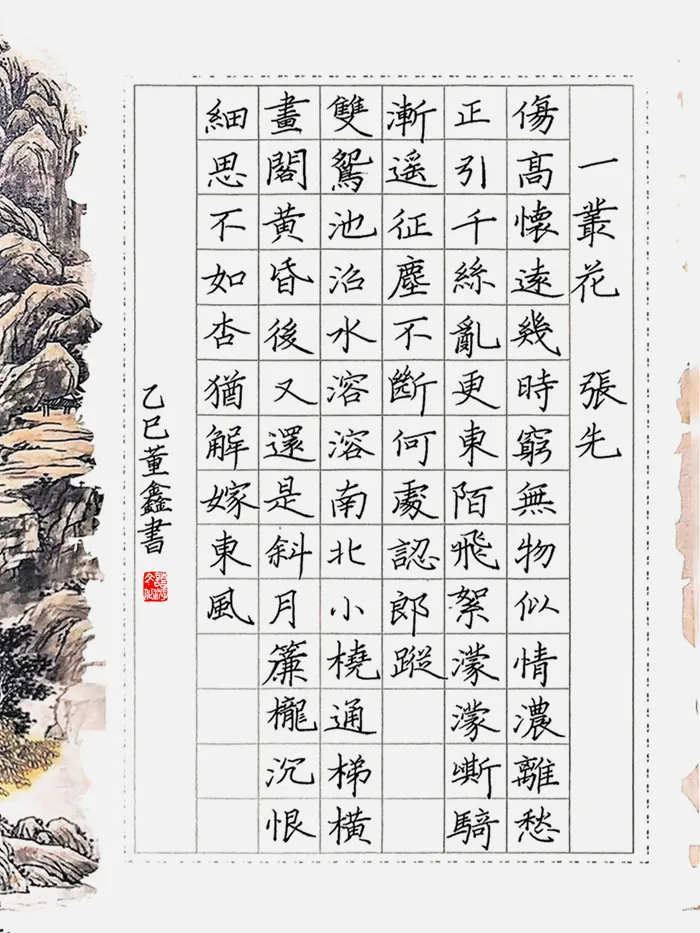 一叢花 張先
傷高懷遠幾時窮無物似情濃離愁
正引千絲亂更東陌飛絮濛濛嘶騎
漸遥征塵不斷何處認郎蹤
雙鴛池沼水溶溶南北小橈通梯橫
畫閣黄昏後又還是斜月簾櫳沉恨
細思不如杏猶解嫁東風
乙巳董鑫書